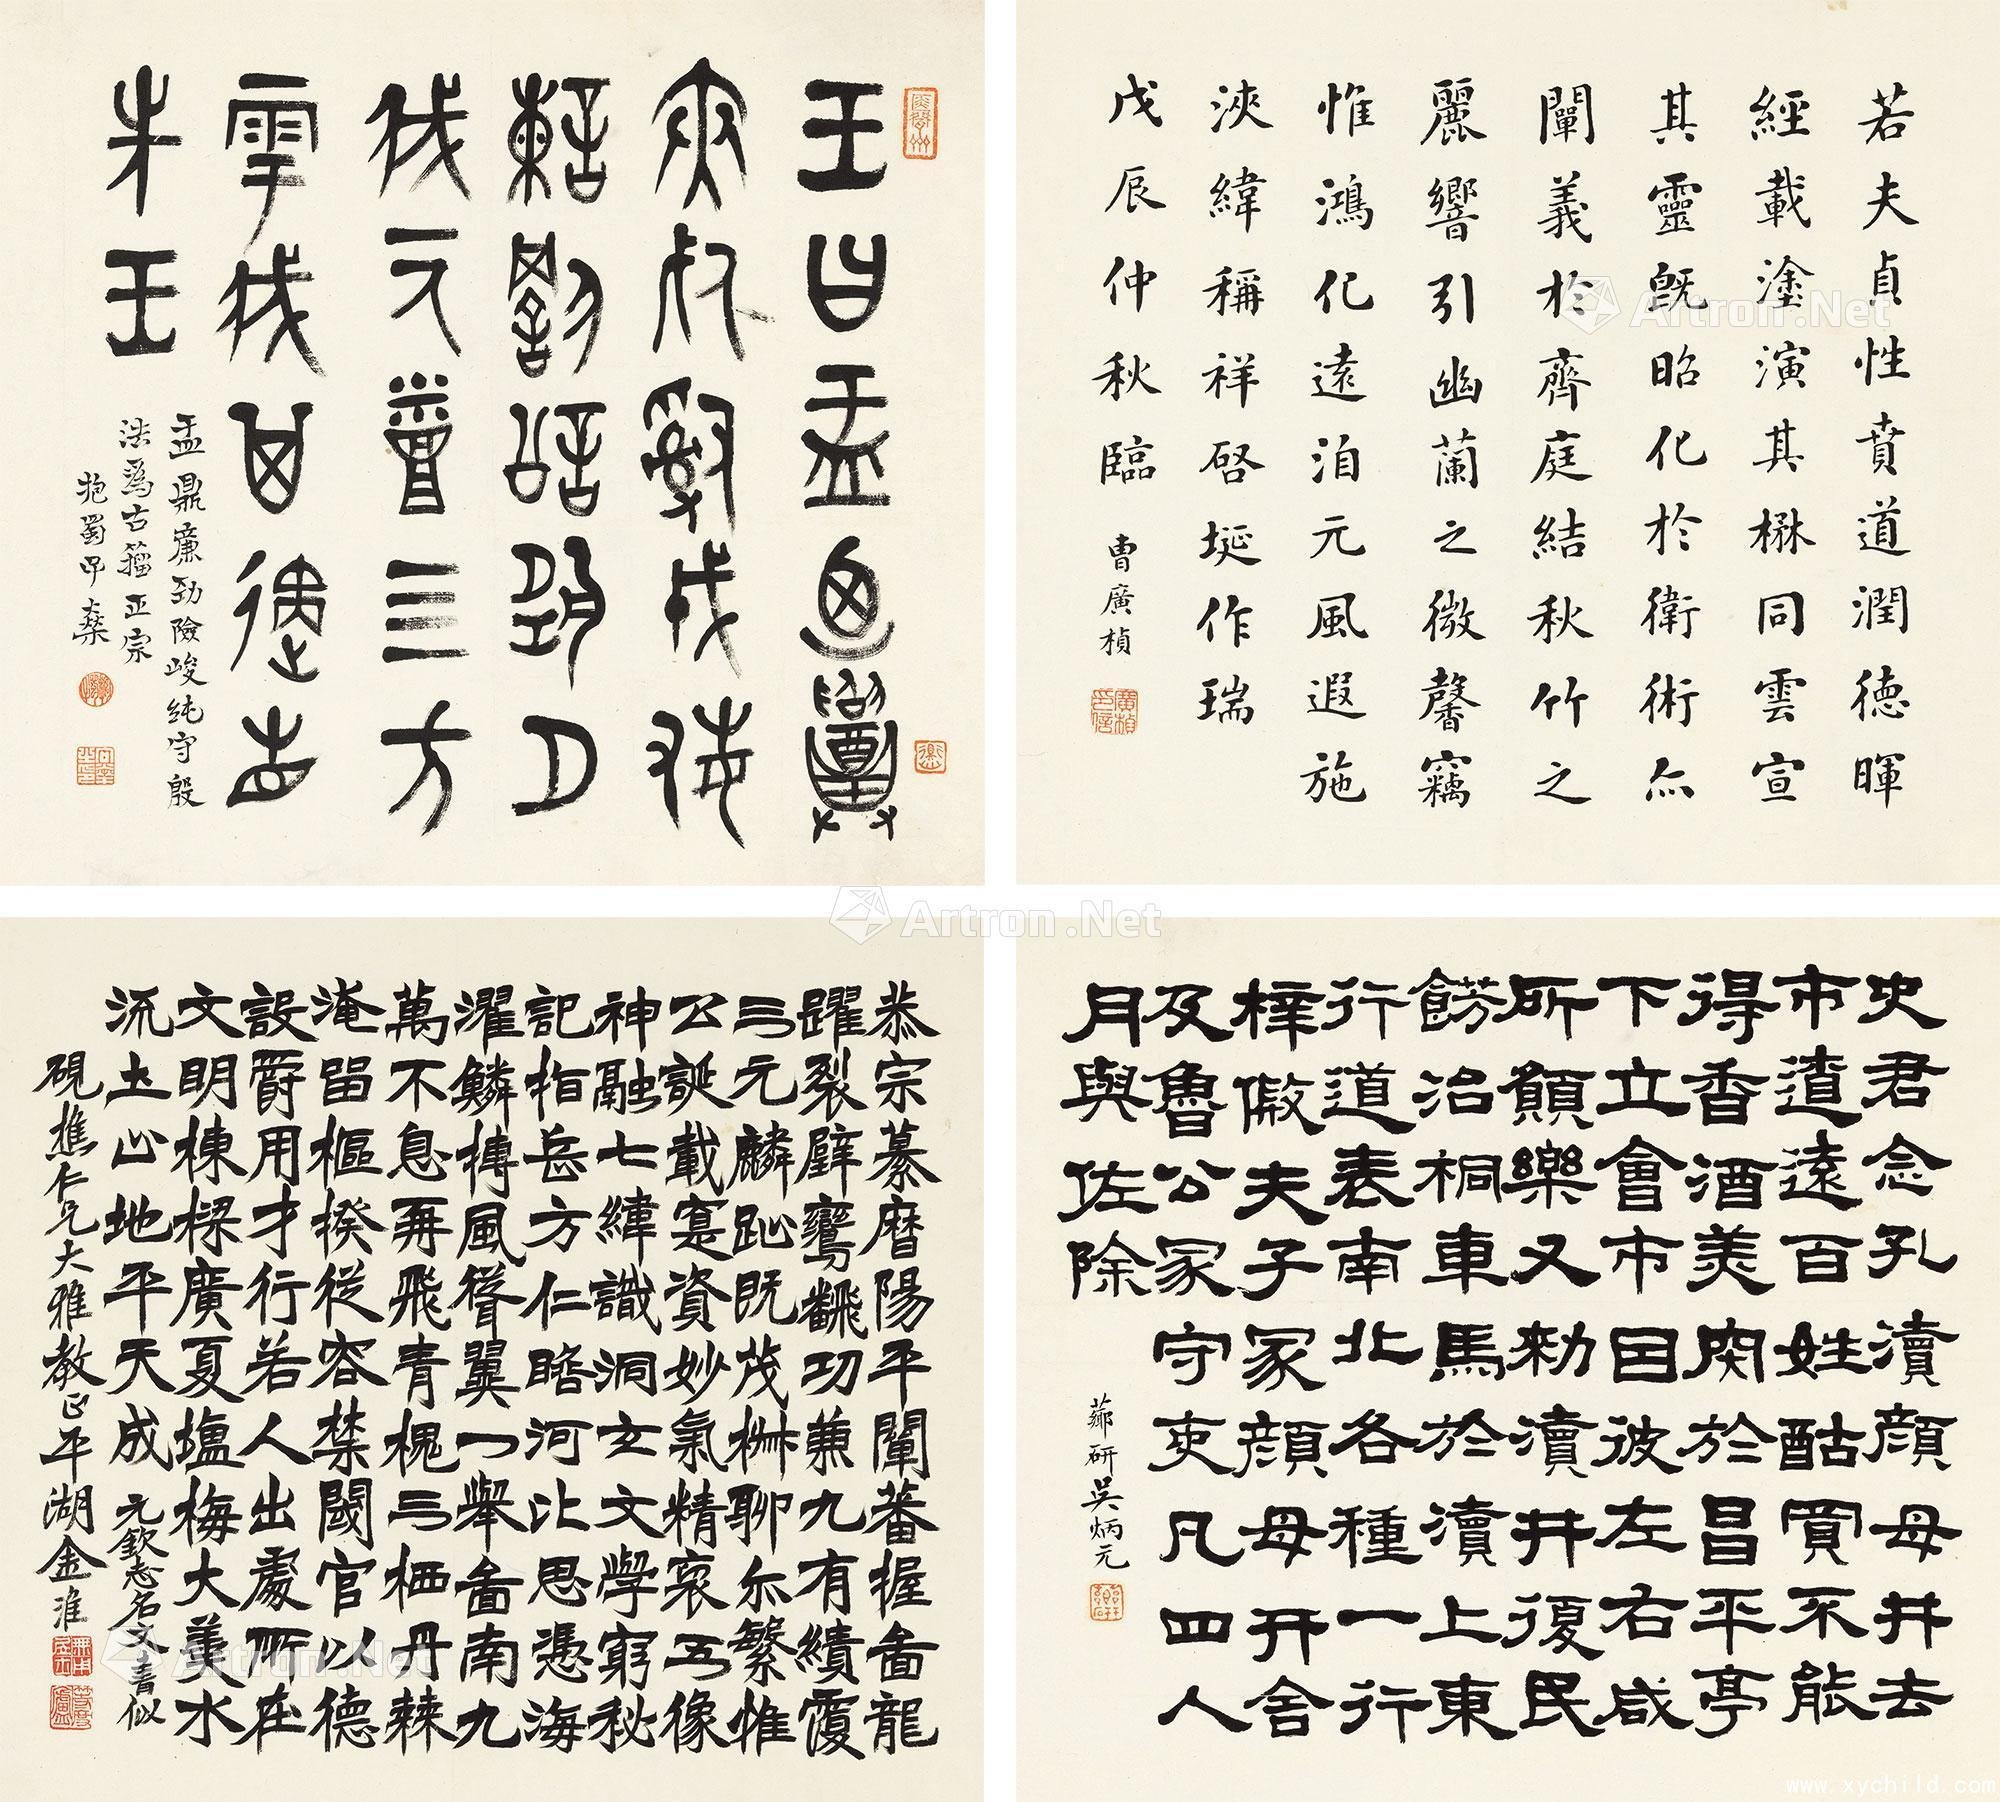 王曰盂
夾
伐
雩
朱王
盂鼎廉勁險峻純守殷
法為古籀正宗
抱蜀
若夫貞性賁道潤德暉
經載塗演其楙同雲宣
其靈既昭化於衛術亦
闡義於齊庭結秋竹之
麗響引幽蘭之微馨竊
惟鴻化遠洎元風遐施
浹緯稱祥啓埏作瑞
戊辰仲秋臨
曹廣楨
恭宗纂曆陽平闡蕃握啚龍
躍裂壁鸞飜功兼九有績覆
三元麟趾既茂椒聊亦繁惟
公誕載寔資妙氣精裒五像
神融七緯識洞玄文學窮秘
記指岳方仁瞻河比思憑海
濯鱗摶風聳翼一舉啚南九
萬不息再飛青槐三栖丹棘
淹留樞揆從容禁閣官以德
設爵用才行若人出處所在
文明棟樑廣夏塩梅大羹水
流土止地平天成
元欽志名文青似
硯樵仁兄大雅教正平湖金淮
史君念孔瀆顏母井去
市遼遠百姓酤買不能
得香酒美肉於昌平亭
下立會市因彼左右咸
所願樂又勑瀆井復民
餝治桐車馬於瀆上東
行道表南北各種一行
梓假夫子冢顏母开舍
及魯公冢守吏凡四人
月與佐除
茆研吳炳元
Artron.Net
Artron.Net
Artron.Net
Artron.Net
www.xychild.com